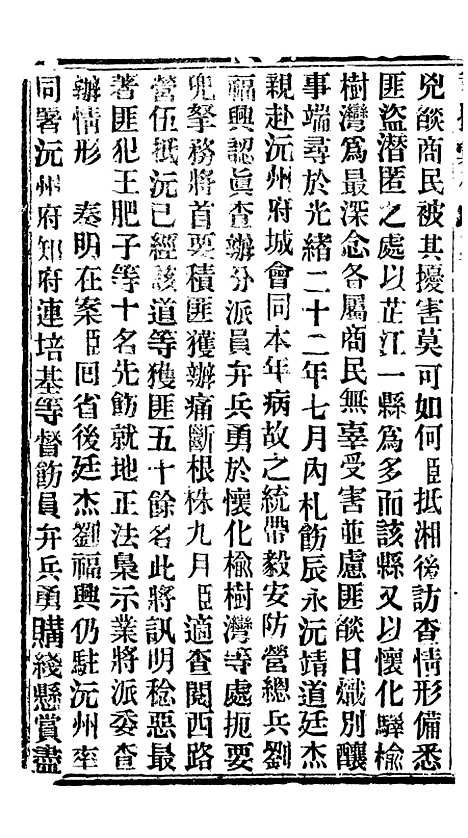 兇燄商民被其擾害莫可如何臣抵湘後訪查情形備悉
匪盜潛匿之處以芷江一縣爲多而該縣又以懷化驛榆
樹灣爲最深念各屬商民無辜受害並慮匪燄日熾別釀
事端尋於光緒二十二年七月內札飭辰永沅靖道廷杰
親赴沅州府城會同本年病故之統帶毅安防營總兵劉
福興認眞查辦分派員弁兵勇於懷化榆樹灣等處扼要
兜拏務將首要積匪獲辦痛斷根株九月臣適查閱西路
營伍抵沅已經該道等獲匪五十餘名此將訊明稔惡最
著匪犯王肥子等十名先飭就地正法梟示業將派委查
辦情形　奏明在案臣囘省後廷杰劉福興仍駐沅州率
同署沅州府知府連培基等督飭員弁兵勇購綫懸賞盡